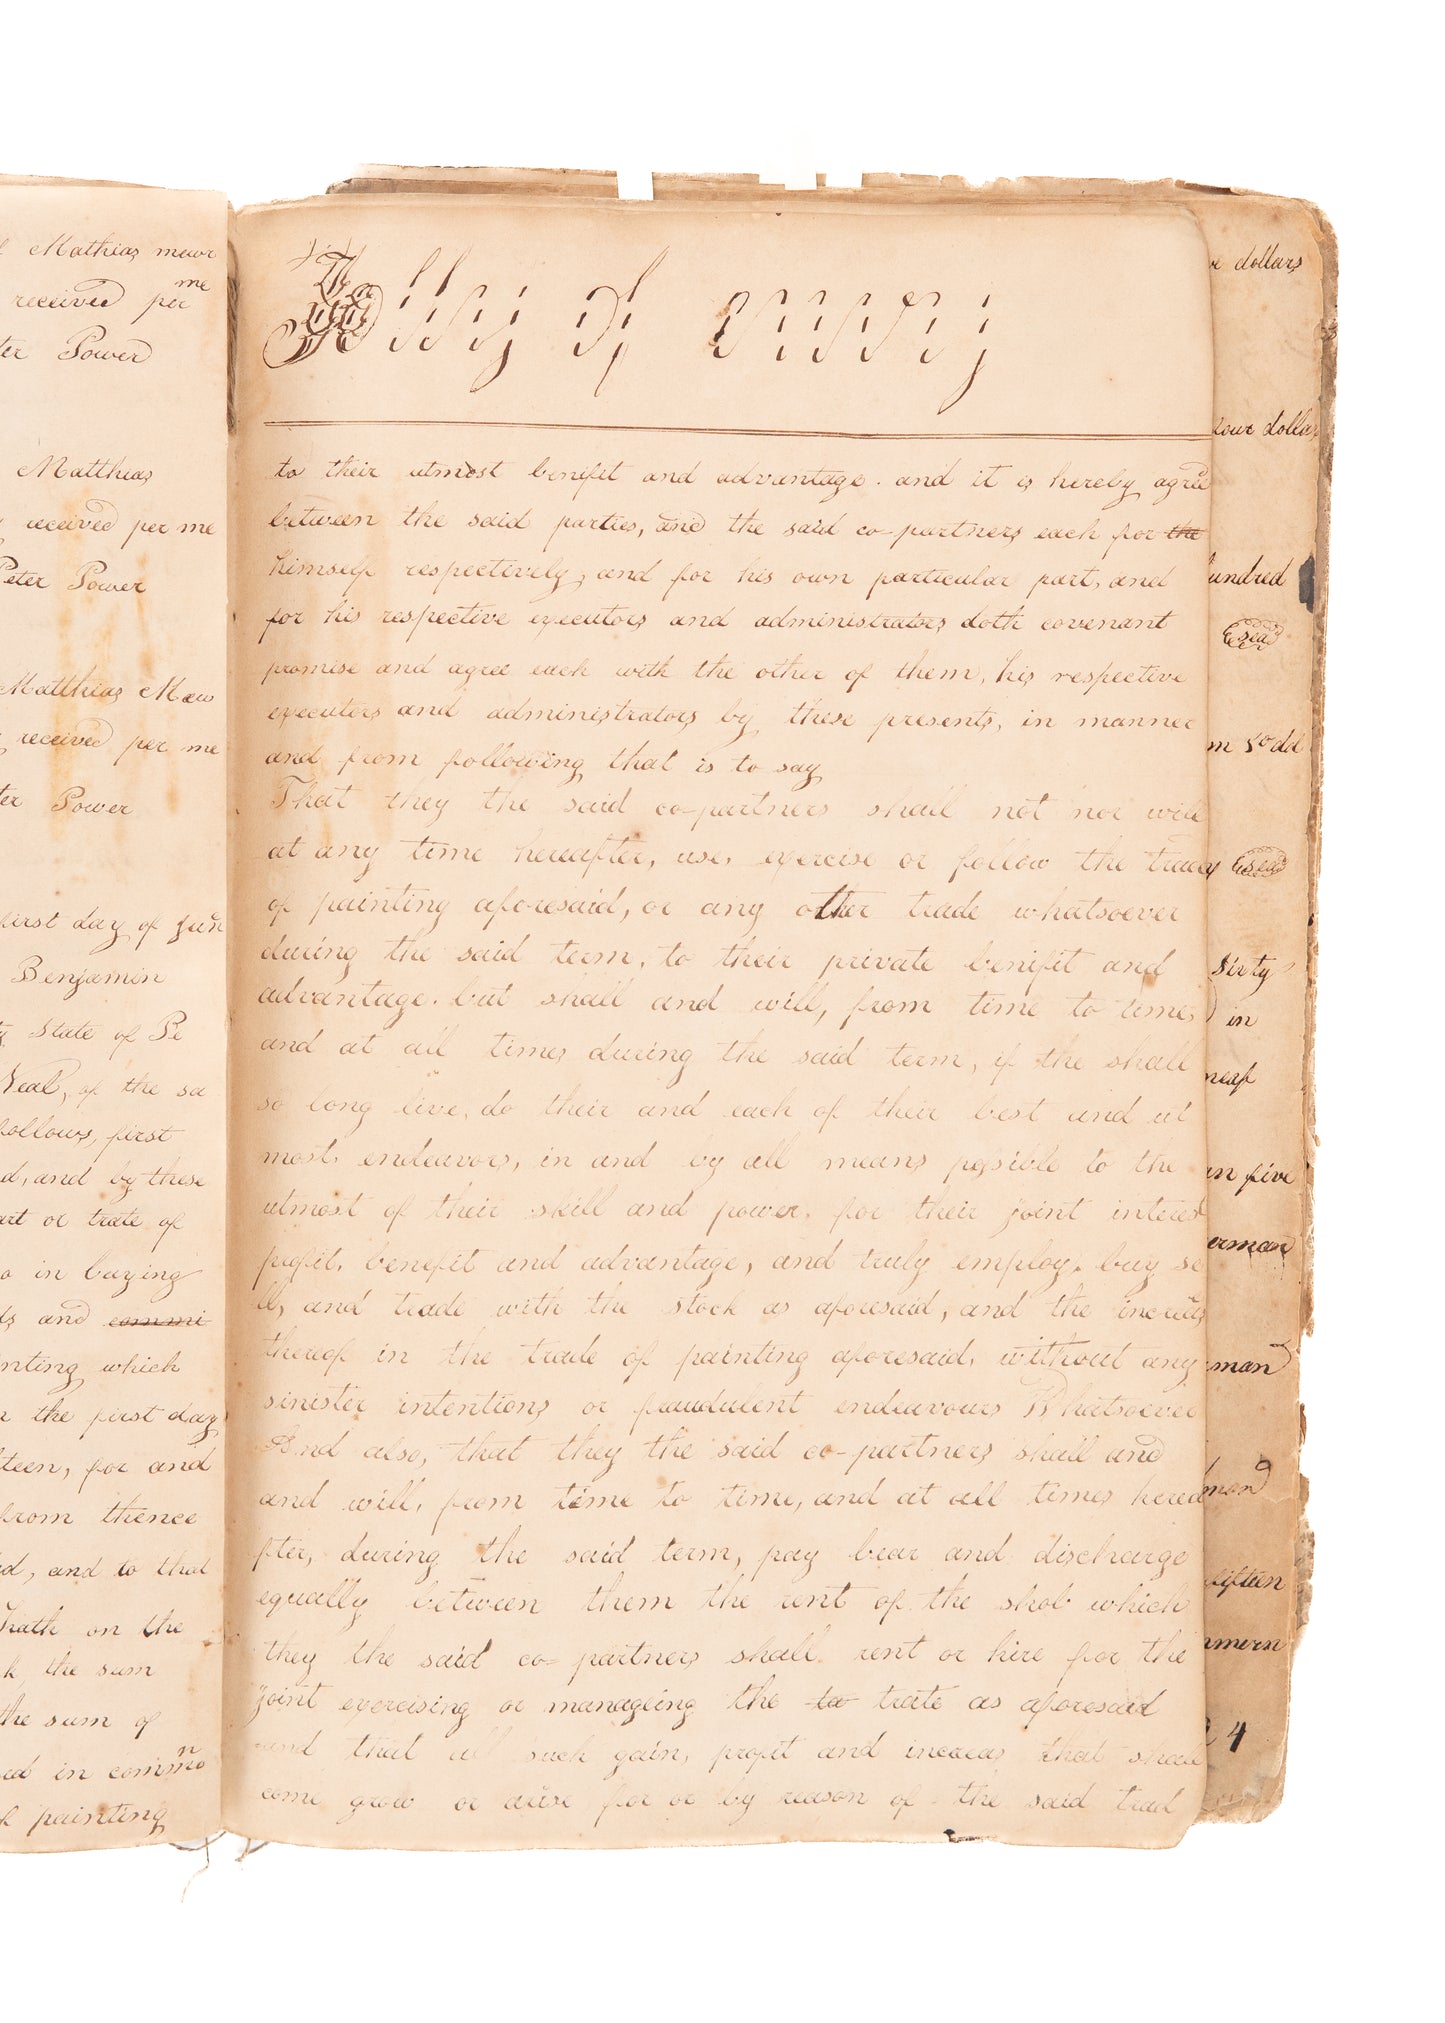 Mathias mewr
me
received per
ter Power
Matthias
received per me
Peter Power
Matthias Mew
received per me
ter Power
first day of Jun
Benjamin
State of Pe
Neal, of the sa
follows, first
d, and by these
art or trate of
o in buying
ds and commi
inting which
n the first day
teen, for and
from thence
d, and to that
Trath on the
k, the sum
the sum of
n
ed in commo
f painting
to their utmost benifit and advantage. and it is hereby agree
between the said parties, and the said co-partners each for the
himself respectively, and for his own particular part, and
for his respective executors and administrators doth covenant
promise and agree each with the other of them, his respective
executers and administrators by these presents, in manner
and from following that is to say
That they the said co-partners shall not nor will
at any time hereafter, use, exercise or follow the traed
of painting aforesaid, or any other trade whatsoever
during the said term, to their private benifit and
advantage. but shall and will, from time to time,
and at all times during the said term, if the shall
so long live, do their and each of their best and ut
most, endeavors, in and by all means possible to the
utmost of their skill and power, for their joint interest
profit, benefit and advantage, and truly employ, buy se
ll, and trade with the stock as aforesaid, and the increas
thereof in the trade of painting aforesaid, without any
sinister intentions or fraudulent endeavours Whatsoever
And also, that they the said co-partners shall and
and will, from time to time, and at all times herea
fter, during the said term, pay bear and discharge
equally between them the rent of the shob which
they the said co-partners shall rent or hire for the
joint exercising or manageing the ta trate as aforesaid
and that all such gain, profit and increas that shall
come grow or arise for or by reason of the said trad
dollars
four dollar
hundred
seal
m 80 dol
seal
Sixty
in
n five
erman
man
man
fifteen
4